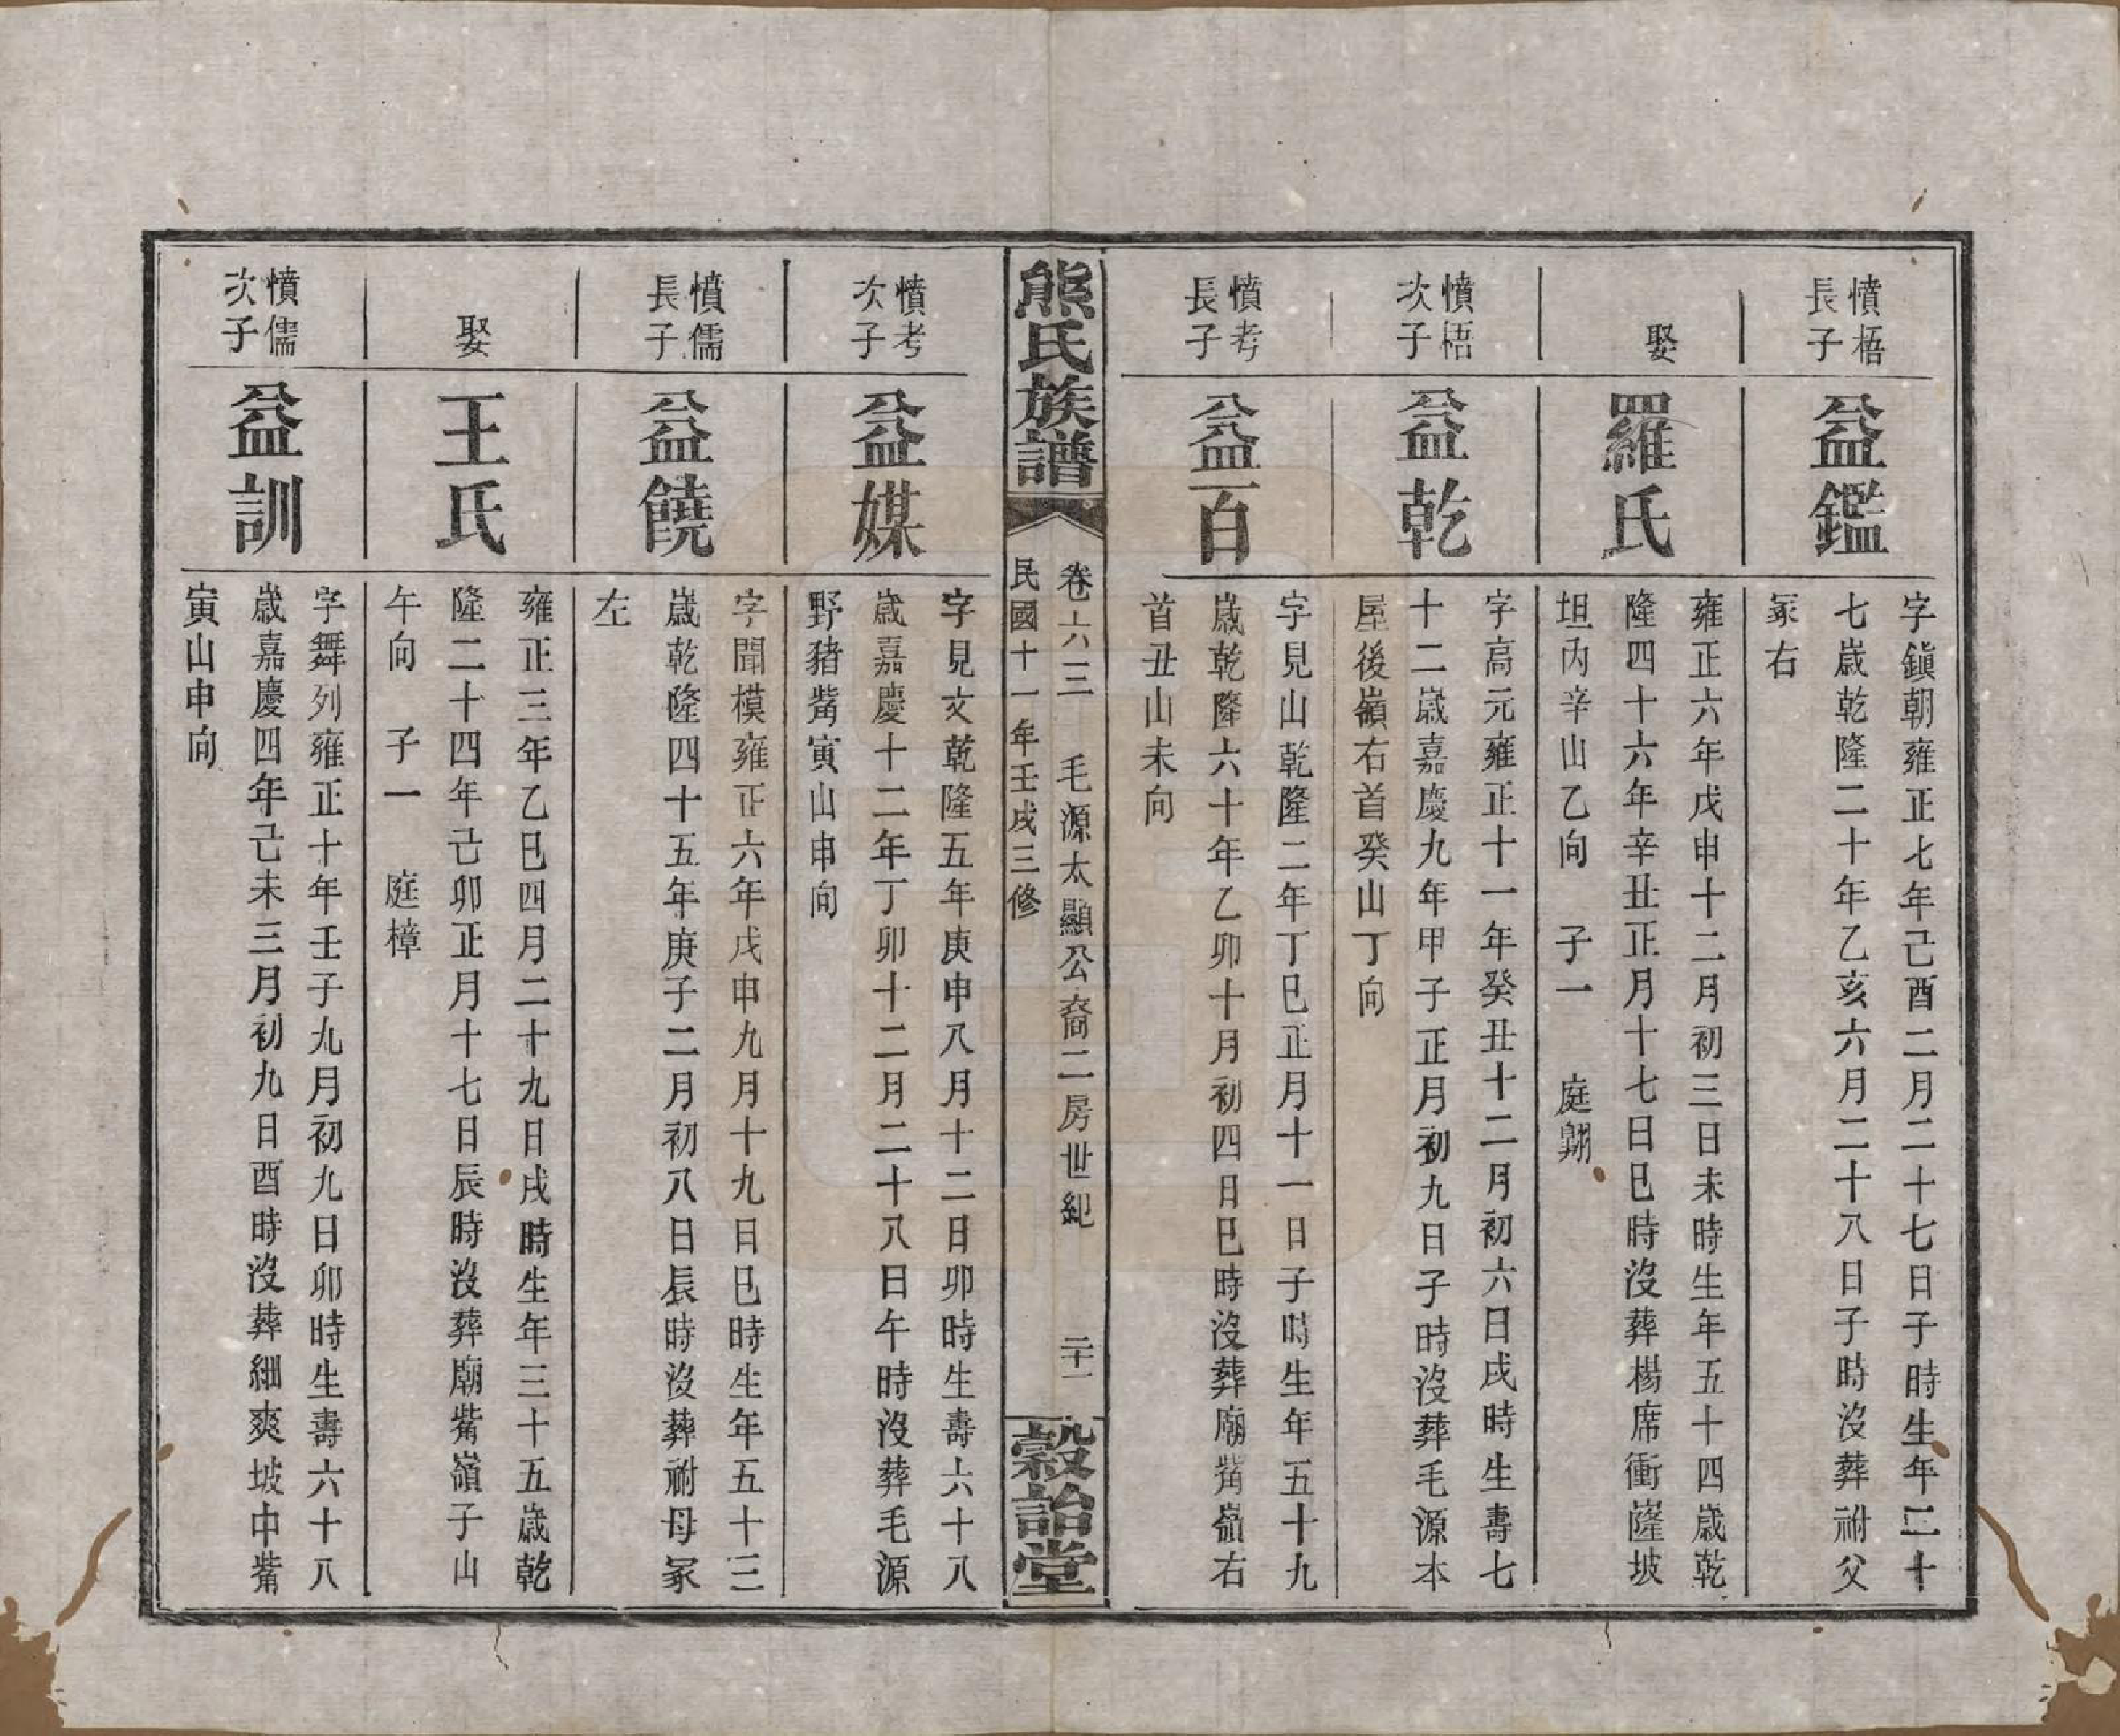 憤梧
長子
益鑑
字鎭朝雍正七年己酉二月二十七日子時生年二十
七歲乾隆二十年乙亥六月二十八日子時沒葬祔父
冢右
娶
羅氏
雍正六年戊申十二月初三日未時生年五十四歲乾
隆四十六年辛丑正月十七日巳時沒葬楊席衝隆坡
坦內辛山乙向 子一 庭翺
憤梧
次子
益乾
字高元雍正十一年癸丑十二月初六日戌時生壽七
十二歲嘉慶九年甲子正月初九日子時沒葬毛源本
屋後嶺右首癸山丁向
憤考
長子
益百
字見山乾隆二年丁巳正月十一日子時生年五十九
歲乾隆六十年乙卯十月初四日巳時沒葬廟觜嶺右
首丑山未向
熊氏族譜
卷六三 毛源太顯公裔二房世紀 二十一
民國十一年壬戌三修
穀詒堂
憤考
次子
益媒
字見文乾隆五年庚申八月十二日卯時生壽六十八
歲嘉慶十二年丁卯十二月二十八日午時沒葬毛源
野豬觜寅山申向
憤儒
長子
益饒
字聞模雍正六年戊申九月十九日巳時生年五十三
歲乾隆四十五年庚子二月初八日辰時沒葬祔母冢
左
娶
王氏
雍正三年乙巳四月二十九日戌時生年三十五歲乾
隆二十四年己卯正月十七日辰時沒葬廟觜嶺子山
午向 子一 庭樟
憤儒
次子
益訓
字舞列雍正十年壬子九月初九日卯時生壽六十八
歲嘉慶四年己未三月初九日酉時沒葬細爽坡中觜
寅山申向